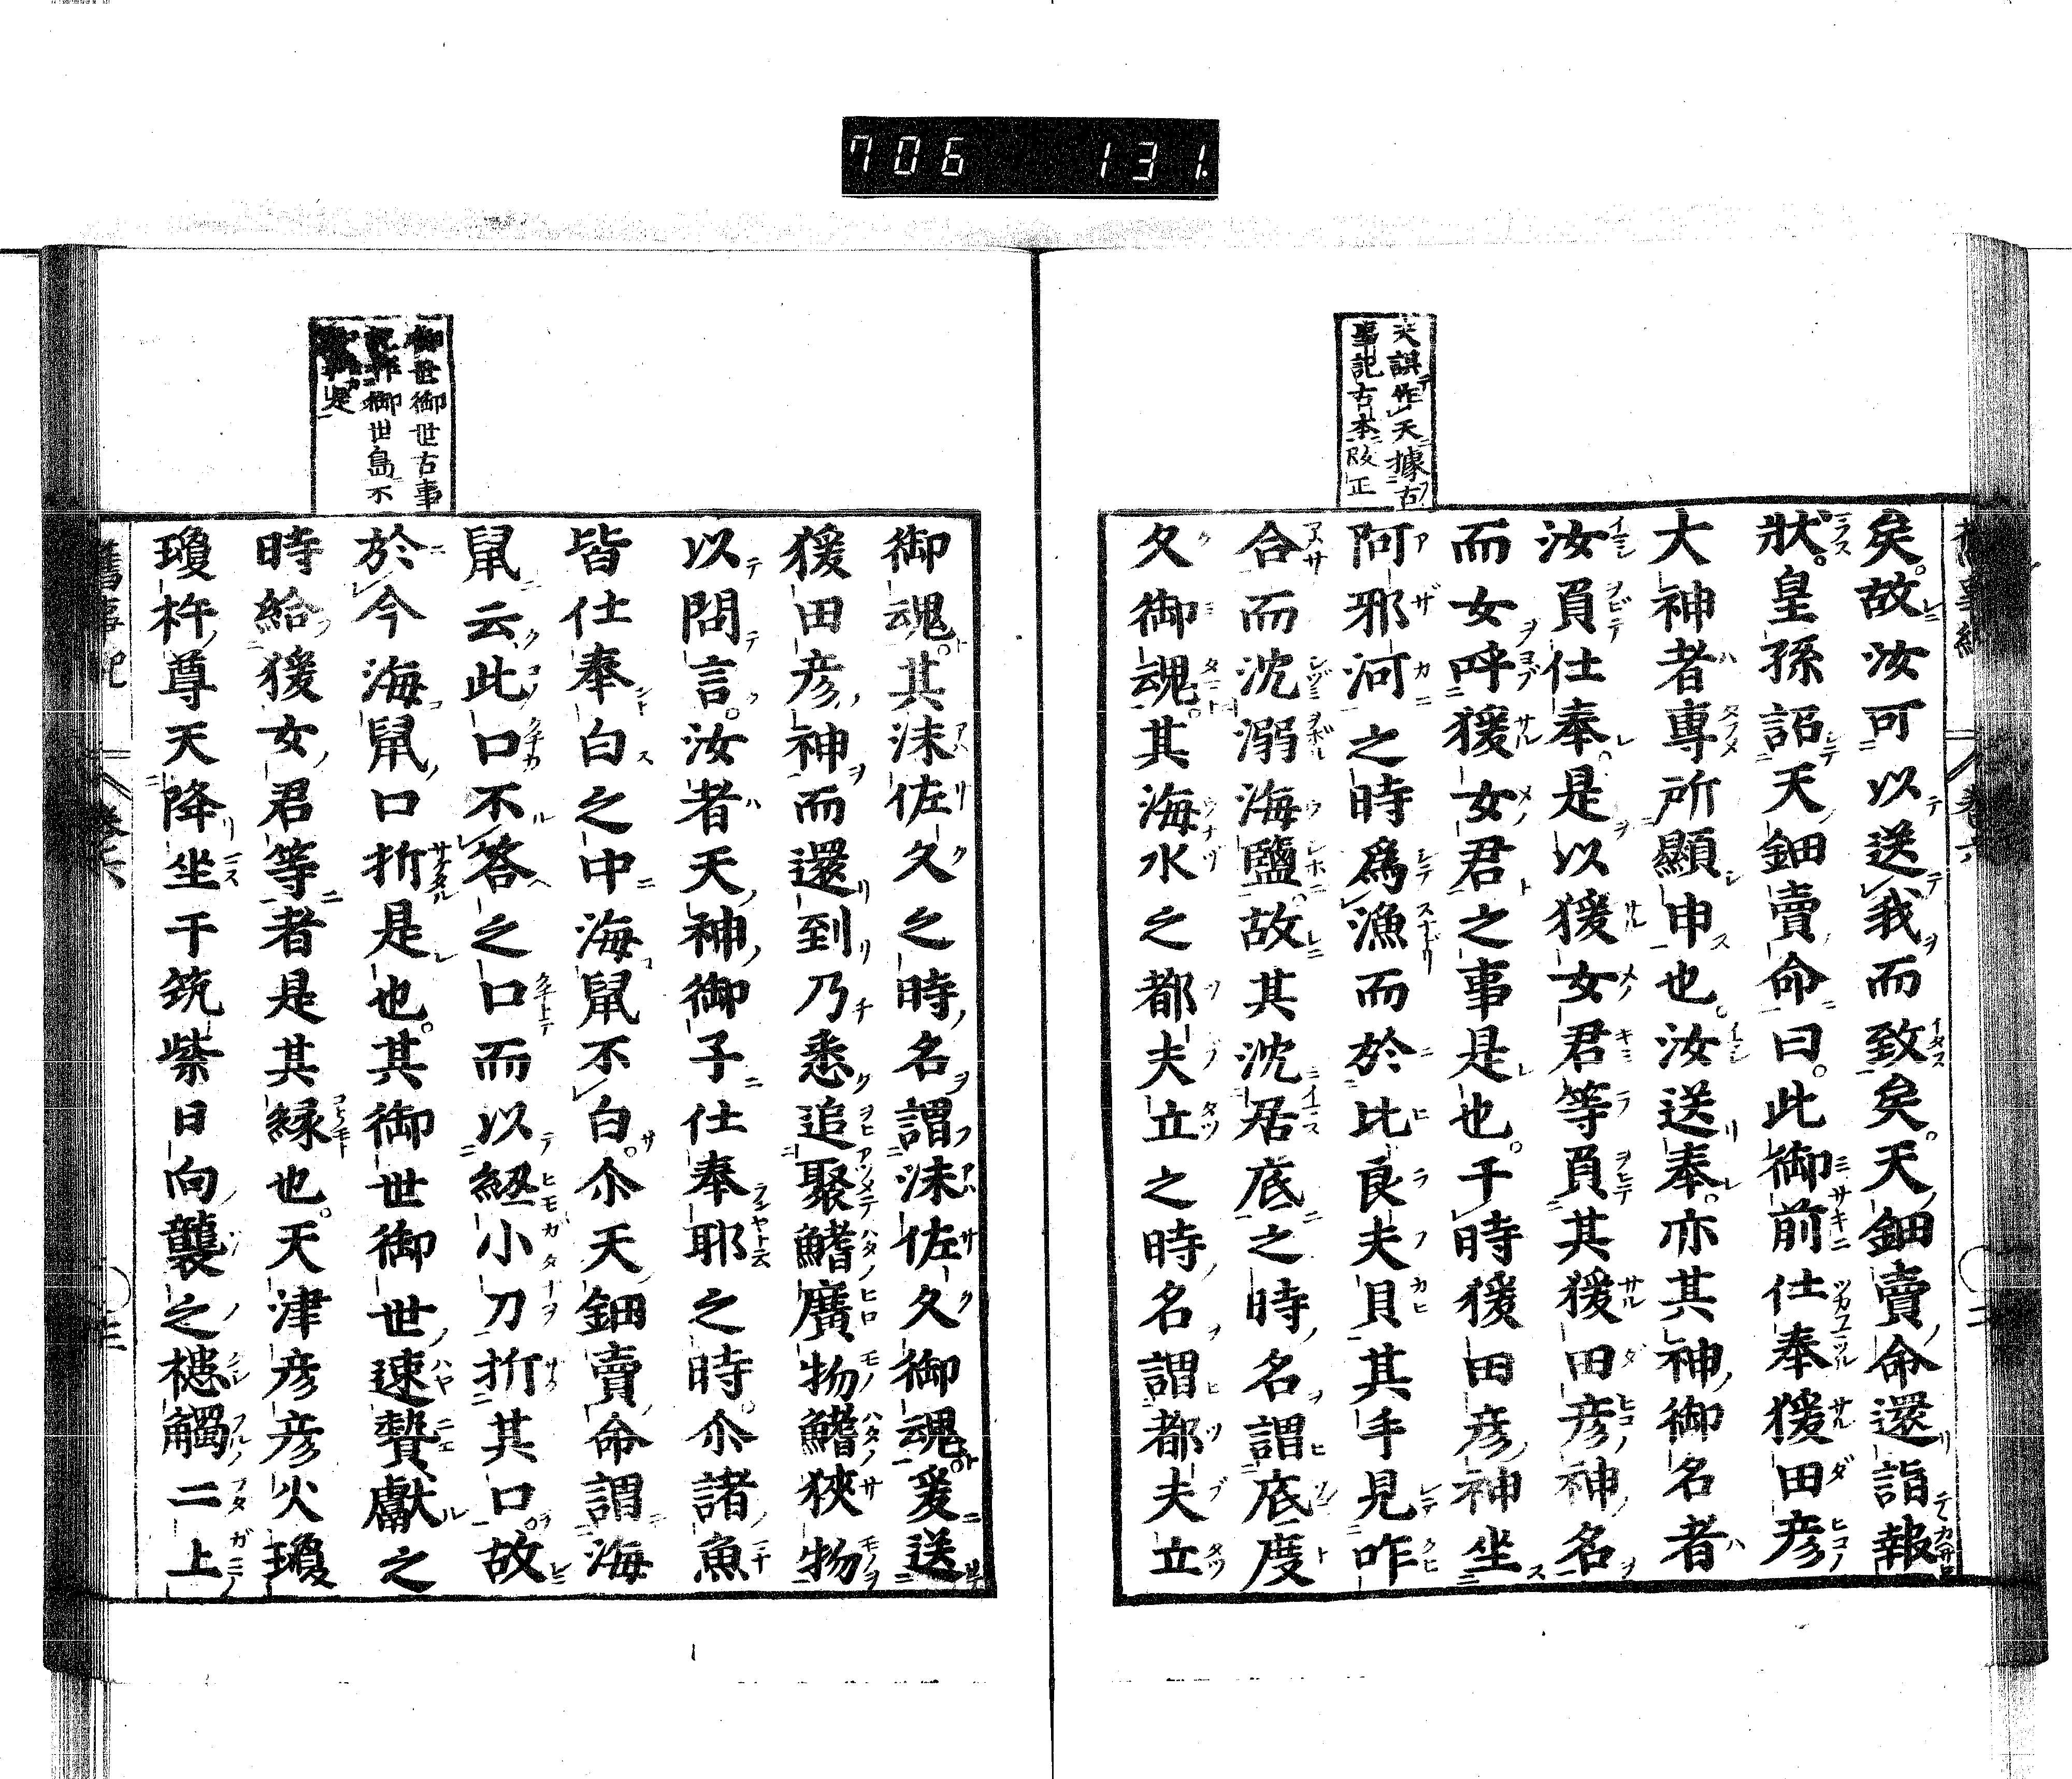 706 131.
夫誤作天據古
事記古本改正
矣。故汝可以送我而致矣。天鈿賣命還詣報
狀。皇孫詔天鈿賣命曰。此御前仕奉猨田彦
大神者專所顯申也。汝送奉。亦其神御名者
汝負仕奉。是以猨女君等負其猨田彦神名
而女呼猨女君之事是也。于時猨田彦神坐
阿邪河之時爲漁而於比良夫貝其手見咋
合而沈溺海鹽。故其沈居底之時名謂底度
久御魂。其海水之都夫立之時名謂都夫立
御世御世古事
作御世島不
是
御魂。其沫佐久之時名謂沫佐久御魂。爰送
猨田彦神而還到乃悉追聚鰭廣物鰭狹物
以問言。汝者天神御子仕奉耶之時。尒諸魚
皆仕奉白之中海鼠不白。尒天鈿賣命謂海
鼠云此口不答之口而以紐小刀折其口。故
於今海鼠口折是也。其御世御世速贄獻之
時給猨女君等者是其縁也。天津彦彦火瓊
瓊杵尊天降坐于筑紫日向襲之槵觸二上
舊事紀 卷六 三